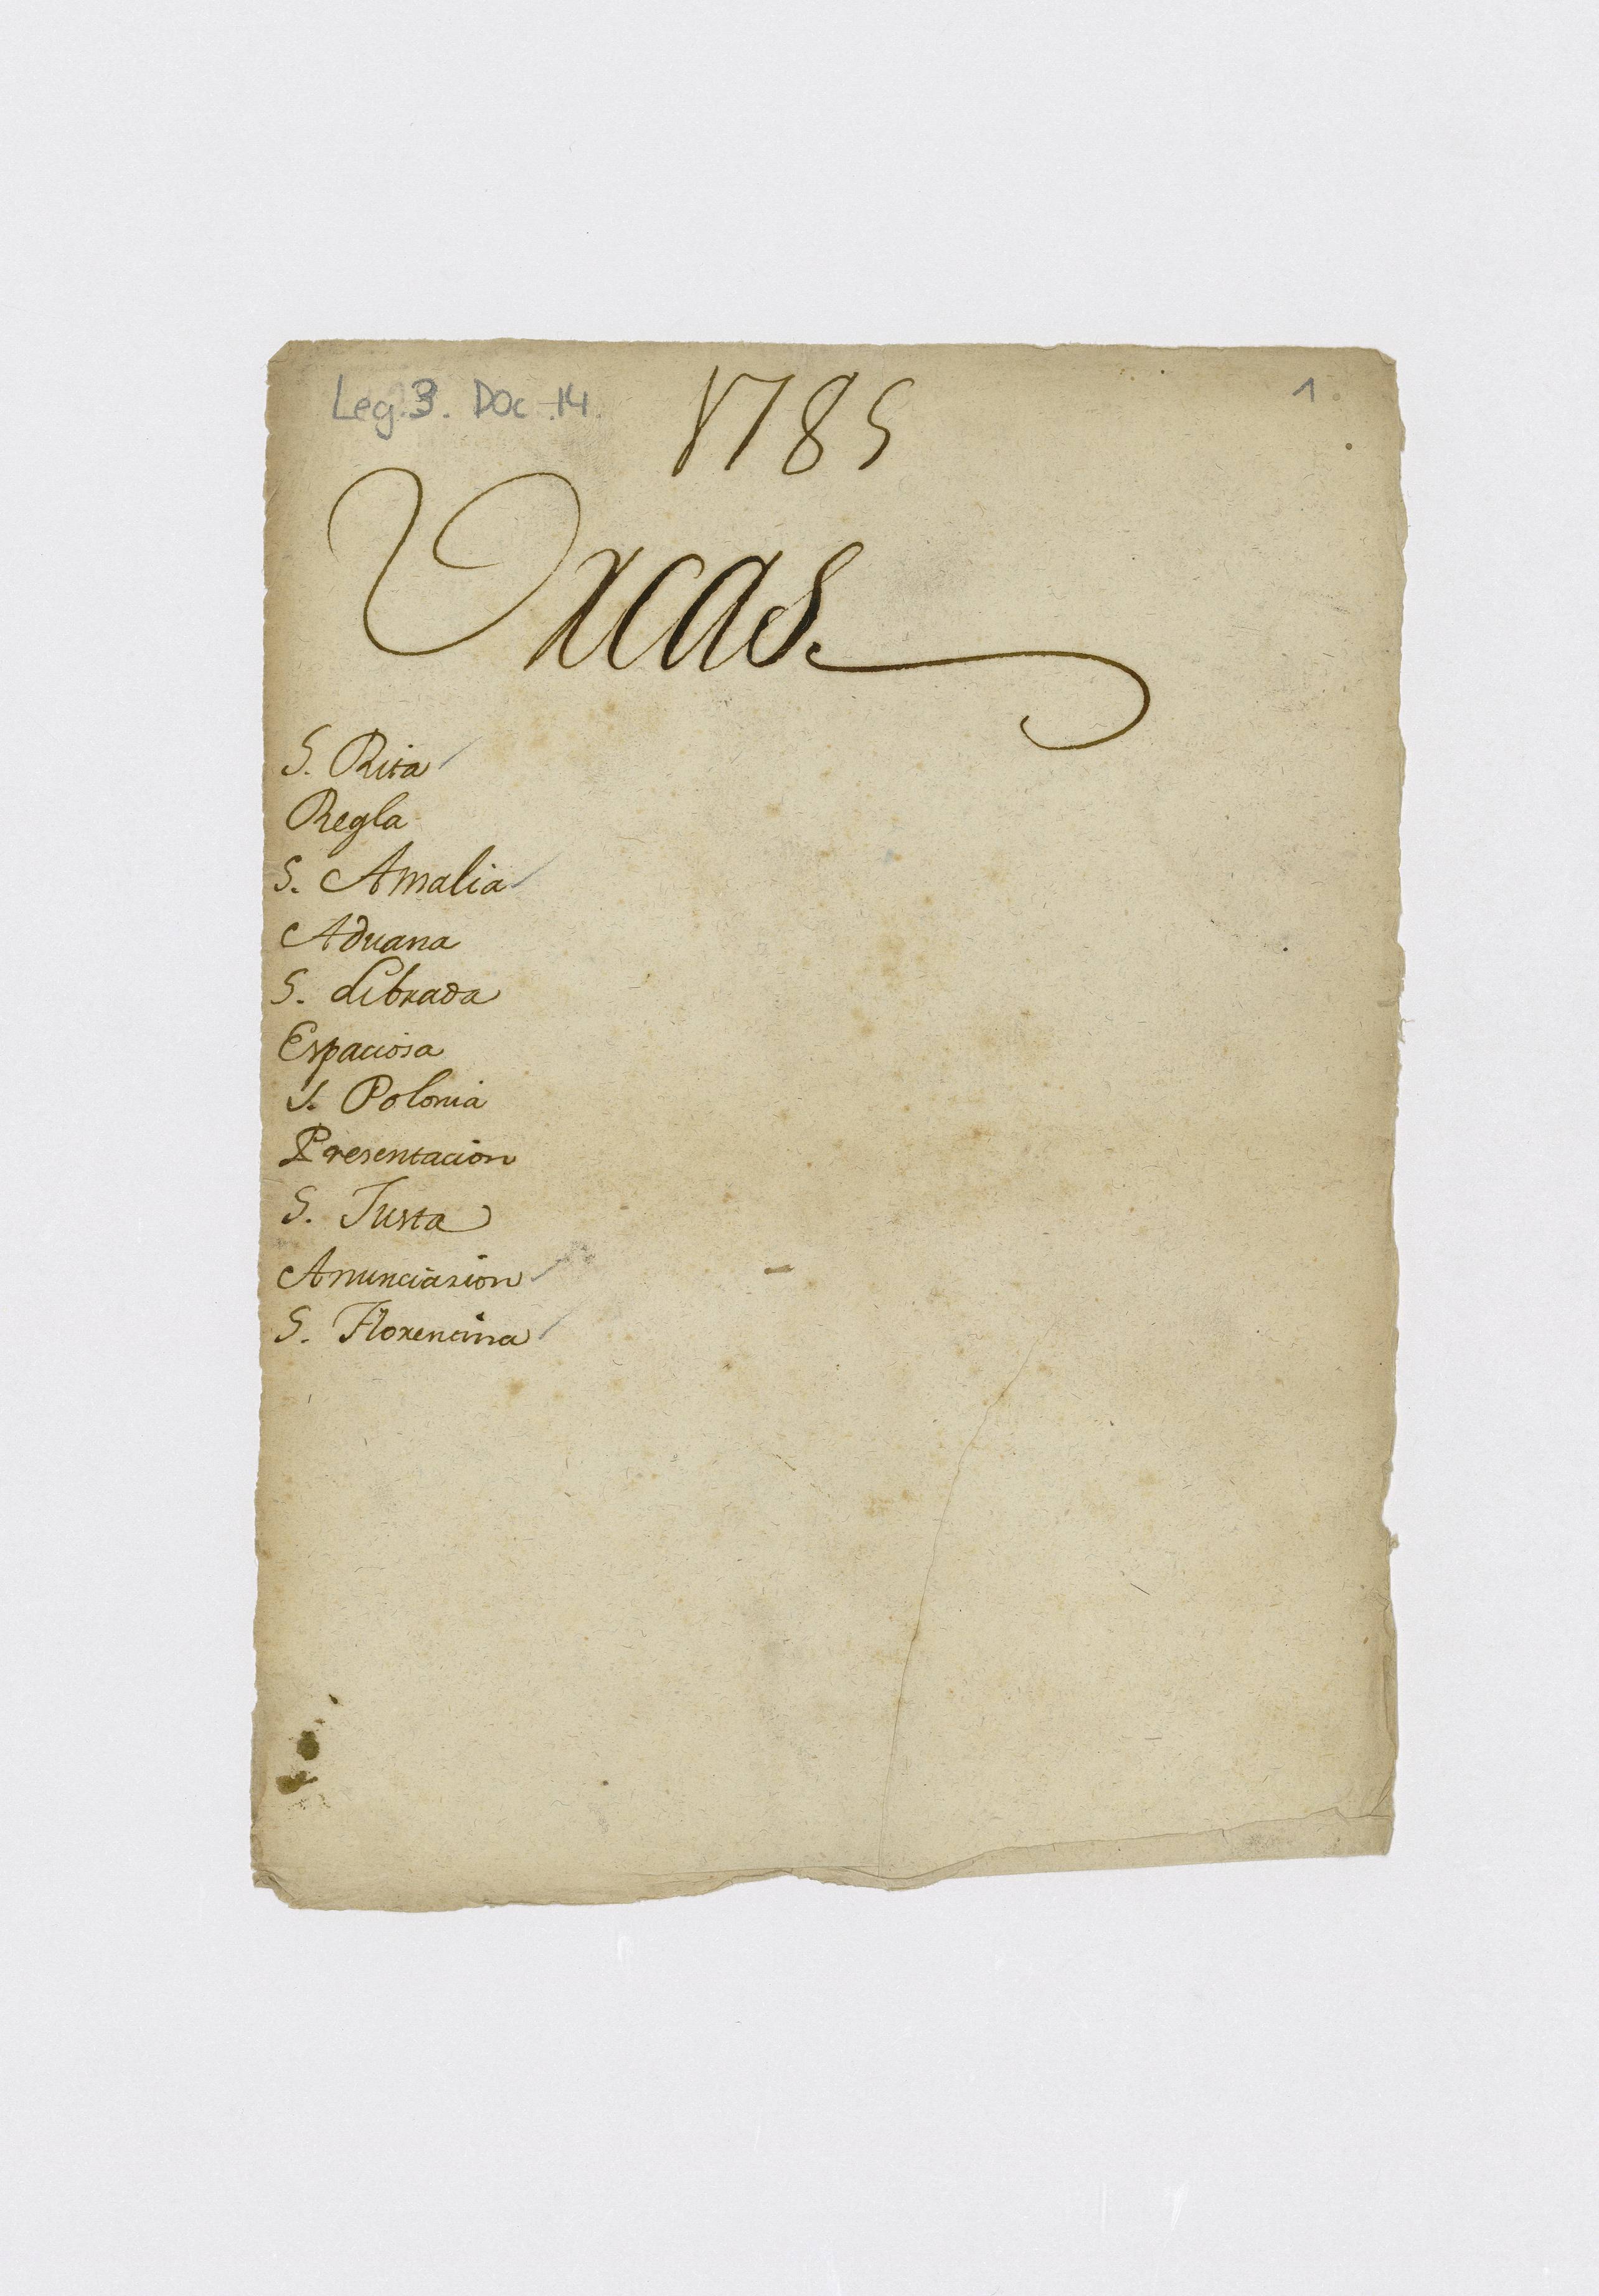 Leg. 3. Doc. 14.
1
1785
Urcas.
S. Rita
Regla
S. Amalia
Aduana
S. Librada
Espaciosa
S. Polonia
Presentacion
S. Justa
Anunciasion
S. Florentina